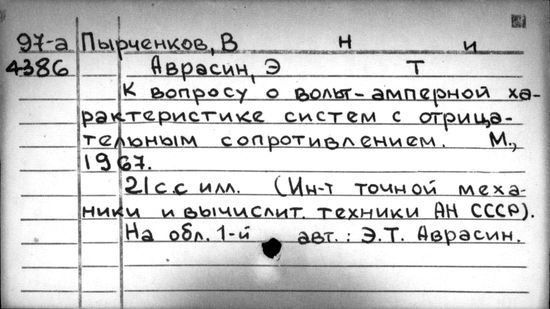 97-а Пырченков, В Н и
4386 Аврасин, Э Т
К вопросу о вольт-амперной ха-
рактеристике систем с отрица-
тельным сопротивлением. М.,
1967.
21 с с илл. (Ин-т точной меха-
ники и вычислит. техники АН СССР).
На обл. 1-й авт.: Э.Т. Аврасин.